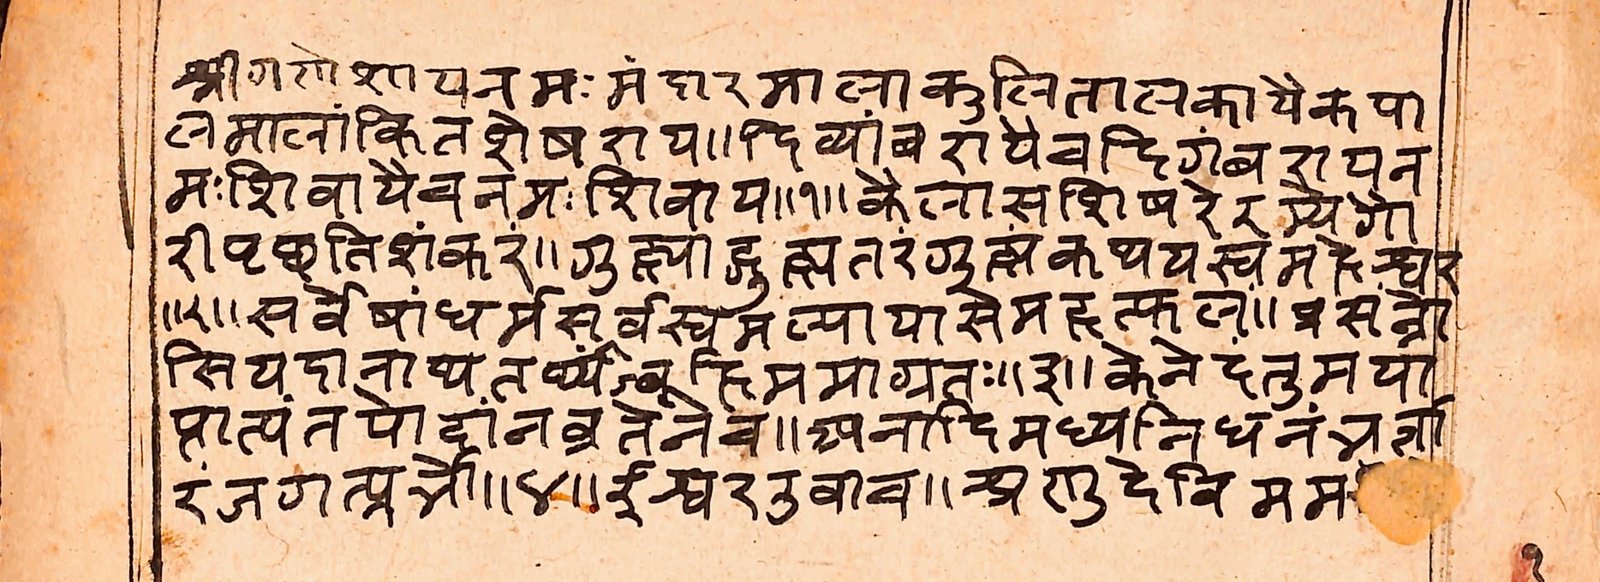 श्रीगणेशायनमः मंदारमालाकुलितालकायैकपा
लमालांकितशेषराय॥ दिव्यांबरायैचदिगंबरायन
मःशिवायैचनमःशिवाय॥१॥ कैलासशिषरेरम्येगौ
रीपृछतिशंकरं॥ गुह्याद्गुह्यतरंगुह्यंकथयस्वमहेश्वर
॥२॥ सर्वेषांधर्मसर्वस्वमल्पायासैमहत्फलं॥ प्रसन्नो
सियदानाथतथ्यंब्रूहिममाग्रतः॥३॥ केनेदंतुमया
प्राप्त्यंतपोदांनव्रतेनैव॥ अनादिमध्यनिधनंभर्त्ता
रंजगत्प्रभौ॥४॥ ईश्वरउवाच॥ श्रणुदेविमम
१